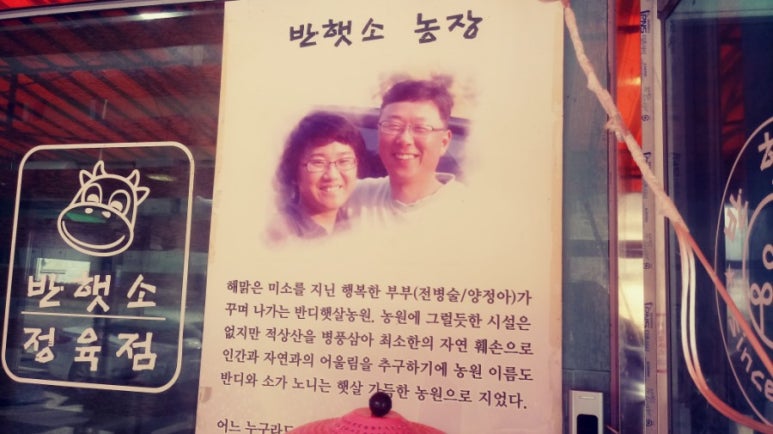 반햇소 농장
해맑은 미소를 지닌 행복한 부부(전병술/양정아)가
꾸며 나가는 반디햇살농원. 농원에 그럴듯한 시설은
없지만 적상산을 병풍삼아 최소한의 자연 훼손으로
인간과 자연과의 어울림을 추구하기에 농원 이름도
반디와 소가 노니는 햇살 가득한 농원으로 지었다.
어느 누구라도
반햇소
정육점
since